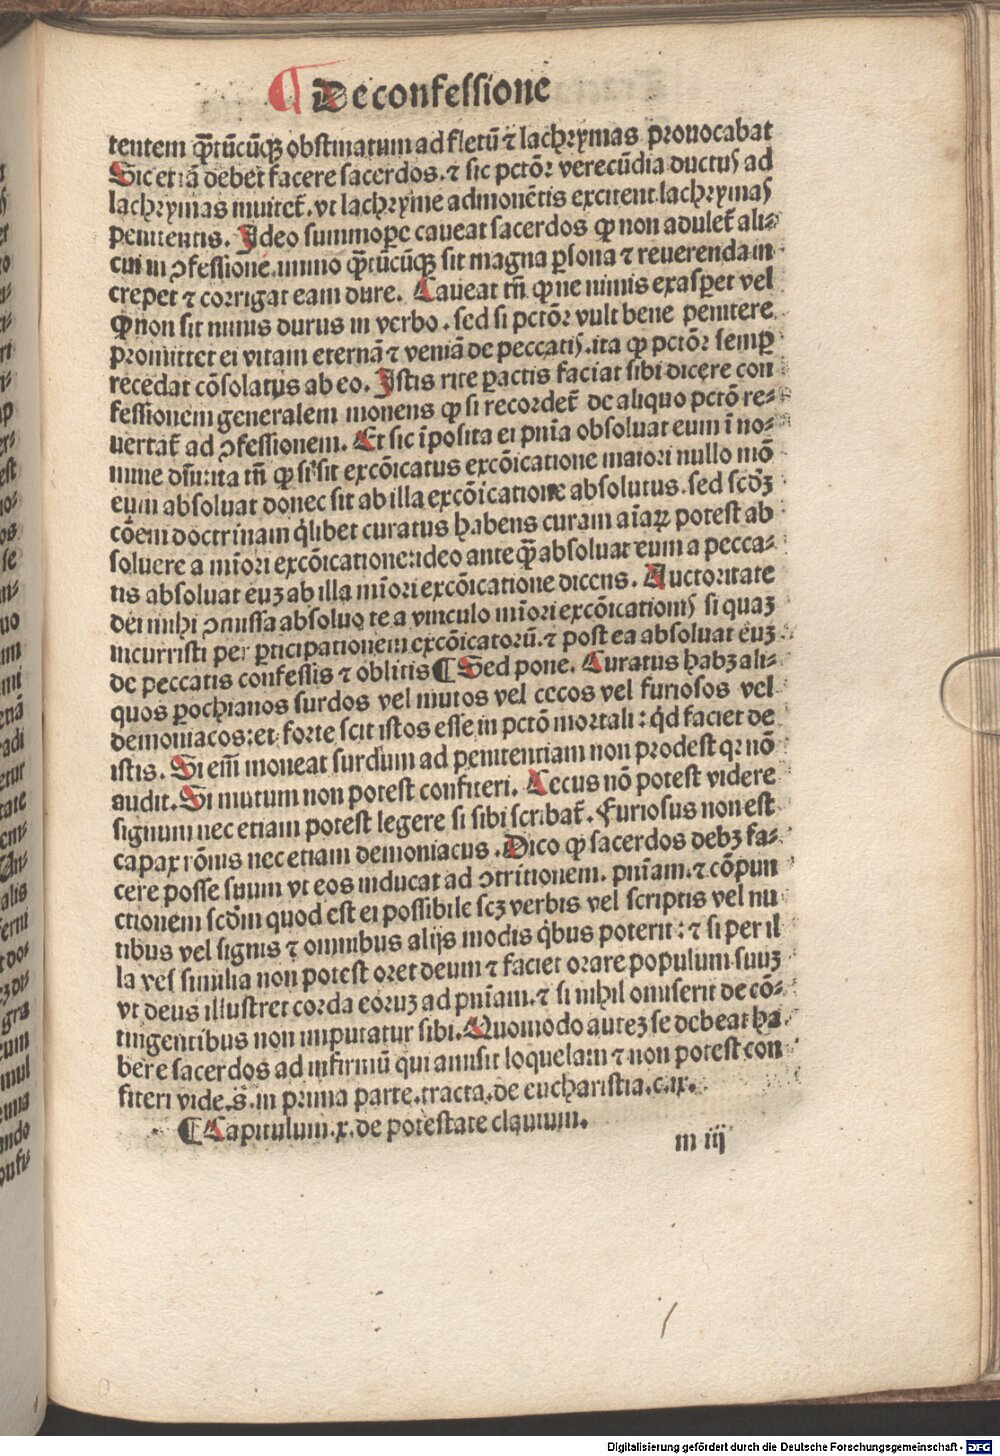 ¶ De confessione
tentem qͣ̄tūcūqꝫ obstinatum ad fletū ⁊ lachrymas prouocabat
Sic etiā debet facere sacerdos. ⁊ sic pctōꝛ verecūdia ductꝰ ad
lachrymas inuitet̄. vt lachryme admonētis excitent lachrymaꝭ
penitentis. Ideo summoꝑe caueat sacerdos ꝙ non adulet̄ ali⸗
cui in ɔfessione. immo qͣ̄tūcūqꝫ sit magna ꝑsona ⁊ reuerenda in
crepet ⁊ corrigat eam dure. Caueat tn̄ ꝙ ne nimis exasꝑet vel
ꝙ non sit nimis durus in verbo. sed si pctōꝛ vult bene penitere
promittet ei vitam eternā ⁊ veniā de peccatiꝭ. ita ꝙ pctōꝛ semꝑ
recedat cōsolatus ab eo. Istis rite ꝑactis faciat sibi dicere con
fessionem generalem monens ꝙ si recordet̄ de aliquo pctō re⸗
uertat̄ ad ɔfessionem. Et sic īposita ei pn̄ia absoluat eum ī no⸗
mine dn̄i: ita tn̄ ꝙ si sit excōicatus excōicatione maiori nullo mō
eum absoluat donec sit ab illa excōicatione absolutus. sed scd̄ꝫ
cōem doctrinam qͥlibet curatus habens curam aīaꝝ potest ab
soluere a mīori excōicatione: ideo ante qͣ̄ absoluat eum a pecca⸗
tis absoluat euꝫ ab illa mīori excōicatione dicens. Auctoritate
dei mihi ɔmissa absoluo te a vinculo mīori excōicationiꝭ si quaꝫ
incurristi per ꝑticipationem excōicatorū. ⁊ post ea absoluat euꝫ
de peccatis confessis ⁊ oblitis ¶ Sed pone. Curatus habꝫ ali⸗
quos ꝑochianos surdos vel mutos vel cecos vel furiosos vel
demoniacos: et forte scit istos esse in pctō mortali: qͥd faciet de
istis. Si em̄ moneat surdum ad penitentiam non prodest qꝛ nō
audit. Si mutum non potest confiteri. Cecus nō potest videre
signum nec etiam potest legere si sibi scribat̄. Furiosus non est
capax rōnis nec etiam demoniacus. Dico ꝙ sacerdos debꝫ fa⸗
cere posse suum vt eos inducat ad ɔtritionem. pn̄iam. ⁊ cōpun
ctionem scd̄m quod est ei possibile scꝫ verbis vel scriptis vel nu
tibus vel signis ⁊ omnibus alijs modis qͥbus poterit: ⁊ si per il
la vel similia non potest oret deum ⁊ faciet orare populum suuꝫ
vt deus illustret corda eoruꝫ ad pn̄iam. ⁊ si nihil omiserit de cō⸗
tingentibus non imputatur sibi. Quomodo auteꝫ se debeat ha
bere sacerdos ad infirmū qui amisit loquelam ⁊ non potest con
fiteri vide. s̄. in prima parte. tracta. de eucharistia. c. ix.
¶ Capitulum. x. de potestate clauium.
m iij
Digitalisierung gefördert durch die Deutsche Forschungsgemeinschaft - DFG